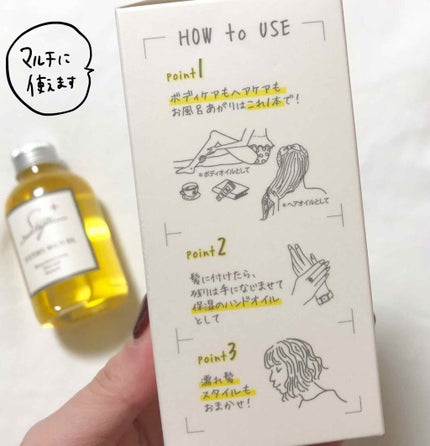 マルチに
使えます
HOW to USE
point1
ボディケアもヘアケアも
お風呂あがりはこれ1本で!
*ボディオイルとして
*ヘアオイルとして
point2
髪に付けたら、
残りは手になじませて
保湿のハンドオイル
として
point3
濡れ髪
スタイルも
おまかせ!